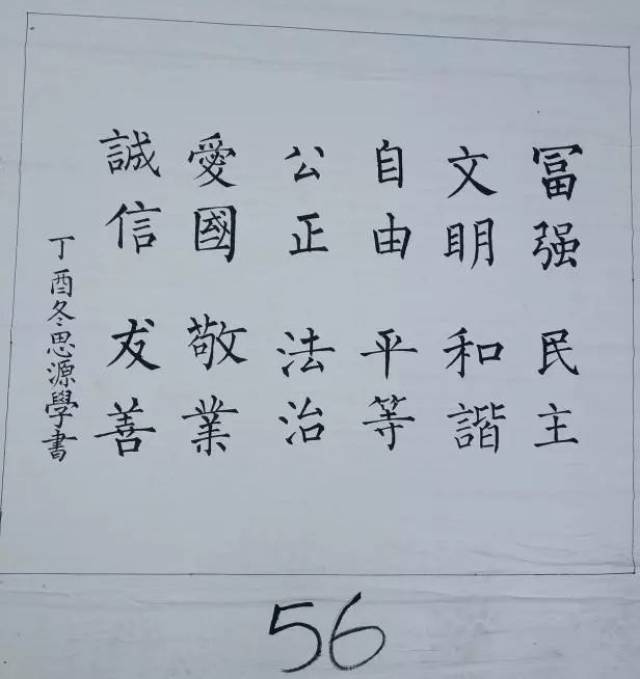 冨强 民主
文明 和諧
自由 平等
公正 法治
愛國 敬業
誠信 友善
丁酉冬思源學書
56